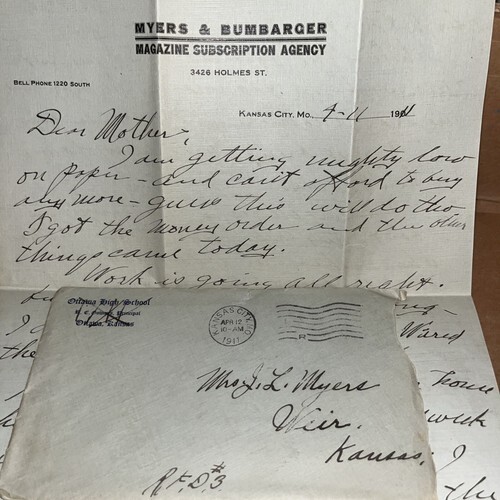 MYERS & BUMBARGER
MAGAZINE SUBSCRIPTION AGENCY
3426 HOLMES ST.
BELL PHONE 1220 SOUTH
KANSAS CITY, MO., 4-11 1911
Dear Mother;
I am getting mighty low
on paper - and can't afford to buy
any more - guess this will do tho
I got the money order and the other
things came today.
Work is going all right.
Ottawa High School
Principal
Ottawa, Kansas
KANSAS CITY, MO.
APR 12
10-AM
1911
R
Wared
the
home
week
Mrs J. L. Myers
Weir,
Kansas,
R.F.D. #3.
I
the